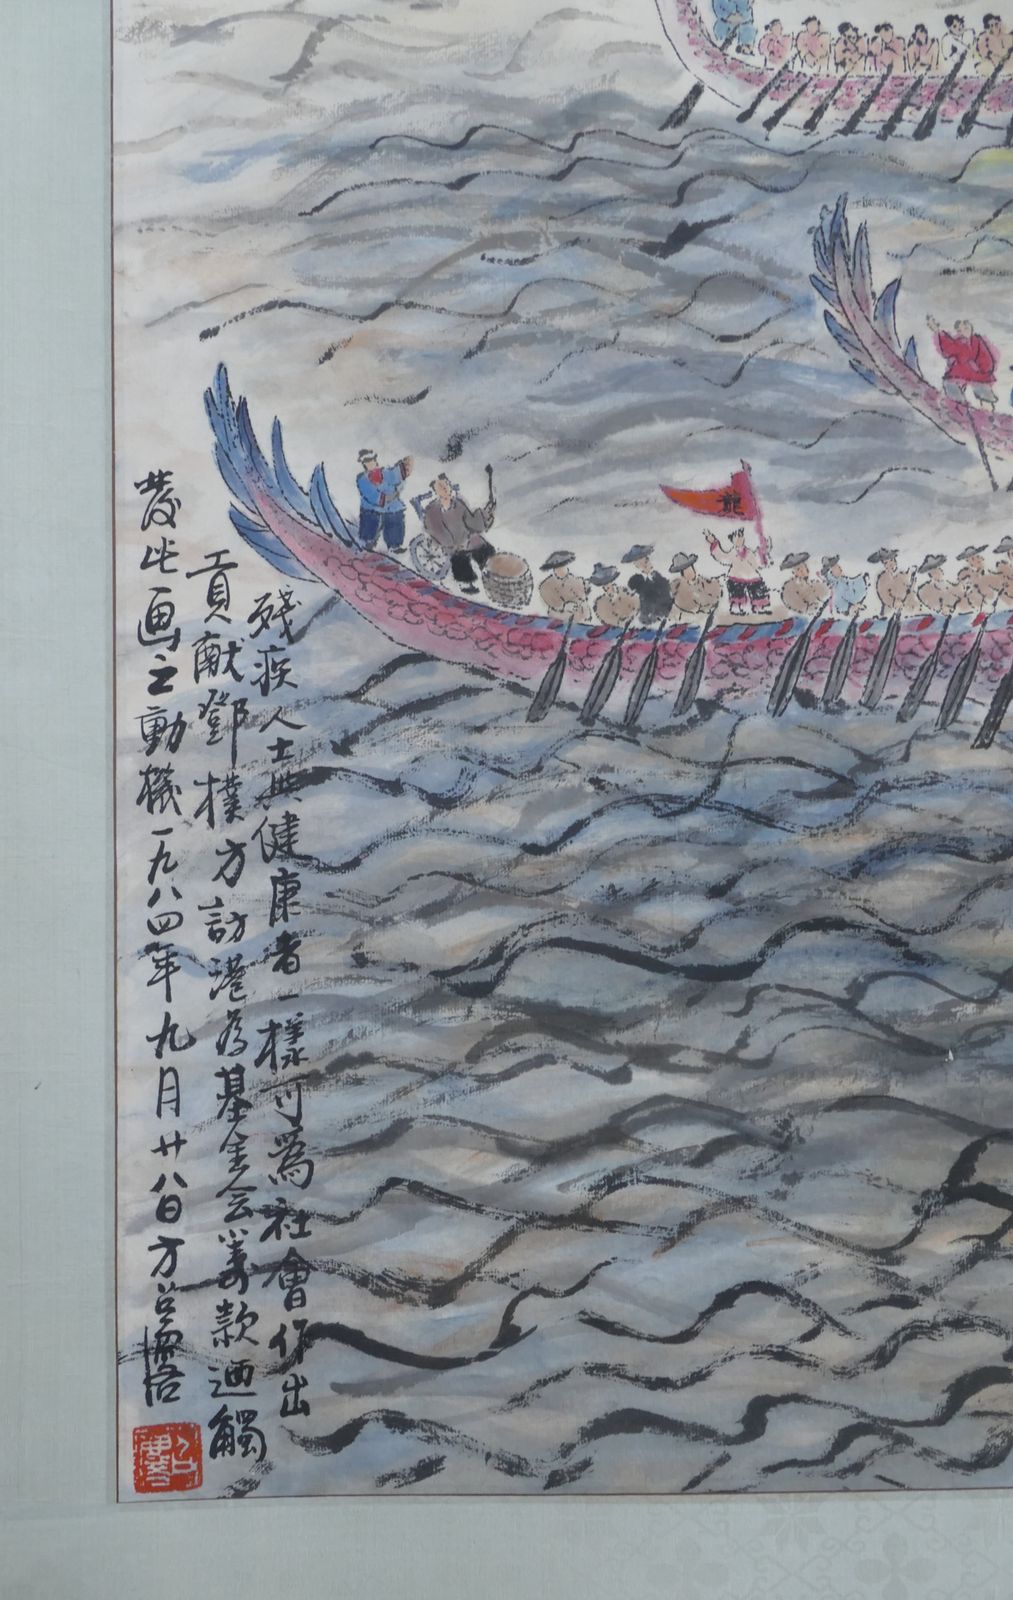 殘疾人士與健康者一樣可爲社會作出
貢獻鄧樸方訪港为基金会籌款迺觸
發此画之動機一九八四年九月廿八日方召麐
龍